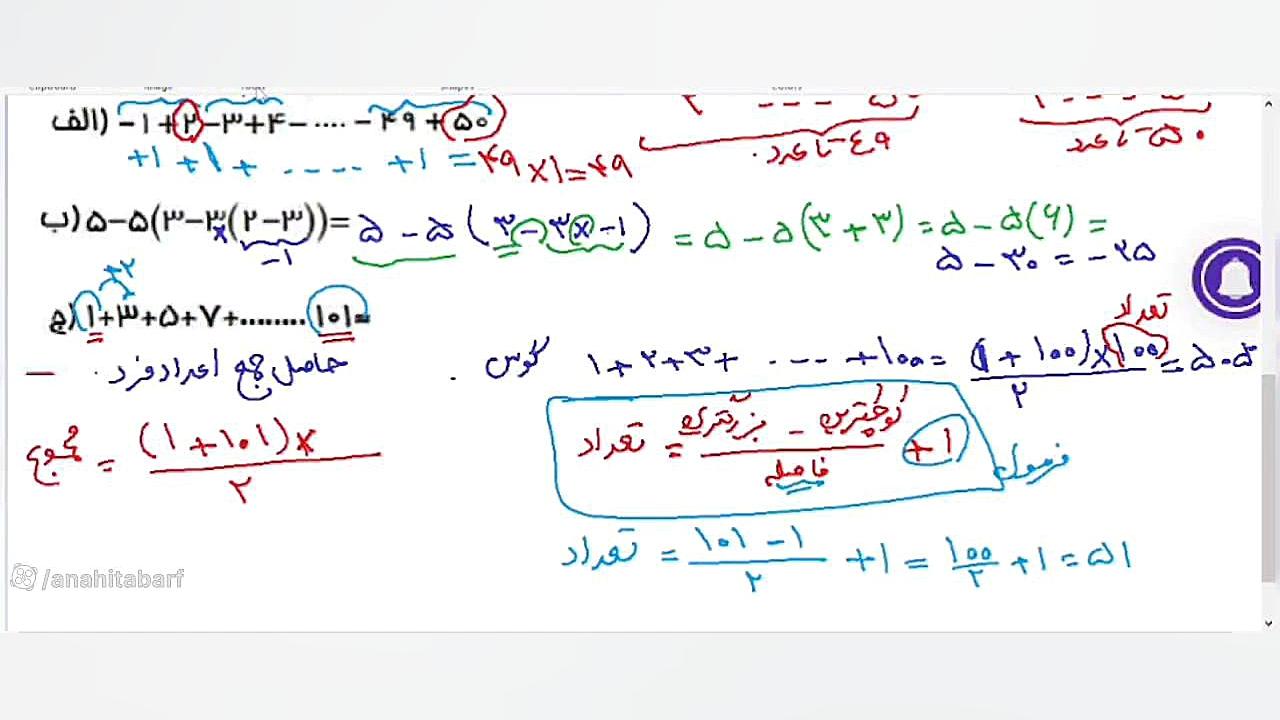 الف) -۱+۲-۳+۴-....-۴۹+۵۰
+۱ +۱ + ..... +۱ = ۴۹×۱=۴۹
۴۹ تا عدد.
۵۰ تا عدد
ب) ۵-۵(۳-۳(۲-۳))= ۵-۵(۳-۳×-۱) = ۵-۵(۳+۳) = ۵-۵(۶) =
-۱
۵-۳۰ = -۲۵
+۲
ج) ۱+۳+۵+۷+........۱۰۱=
تعداد
حاصل جمع اعداد فرد.
گوس ۱+۲+۳+ ..... +۱۰۰ = (۱+۱۰۰)×۱۰۰ / ۲ = ۵۰۵۰
تعداد = کوچکترین - بزرگترین / فاصله +۱
فرمول
مجموع = (۱+۱۰۱)× / ۲
تعداد = ۱۰۱-۱ / ۲ +۱ = ۱۰۰ / ۲ +۱ = ۵۱
/anahitabarf